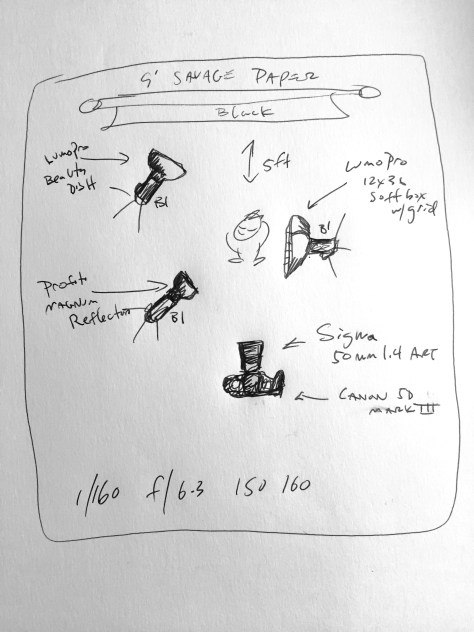 9' SAVAGE PAPER
Black
Lumopro
Beauty
Dish
B1
5ft
Lumopro
12x36
Softbox
w/grid
B1
Profoto
MAGNUM
Reflector
B1
Sigma
50mm 1.4 ART
CANON 5D
MARK III
1/160 f/6.3 ISO 160